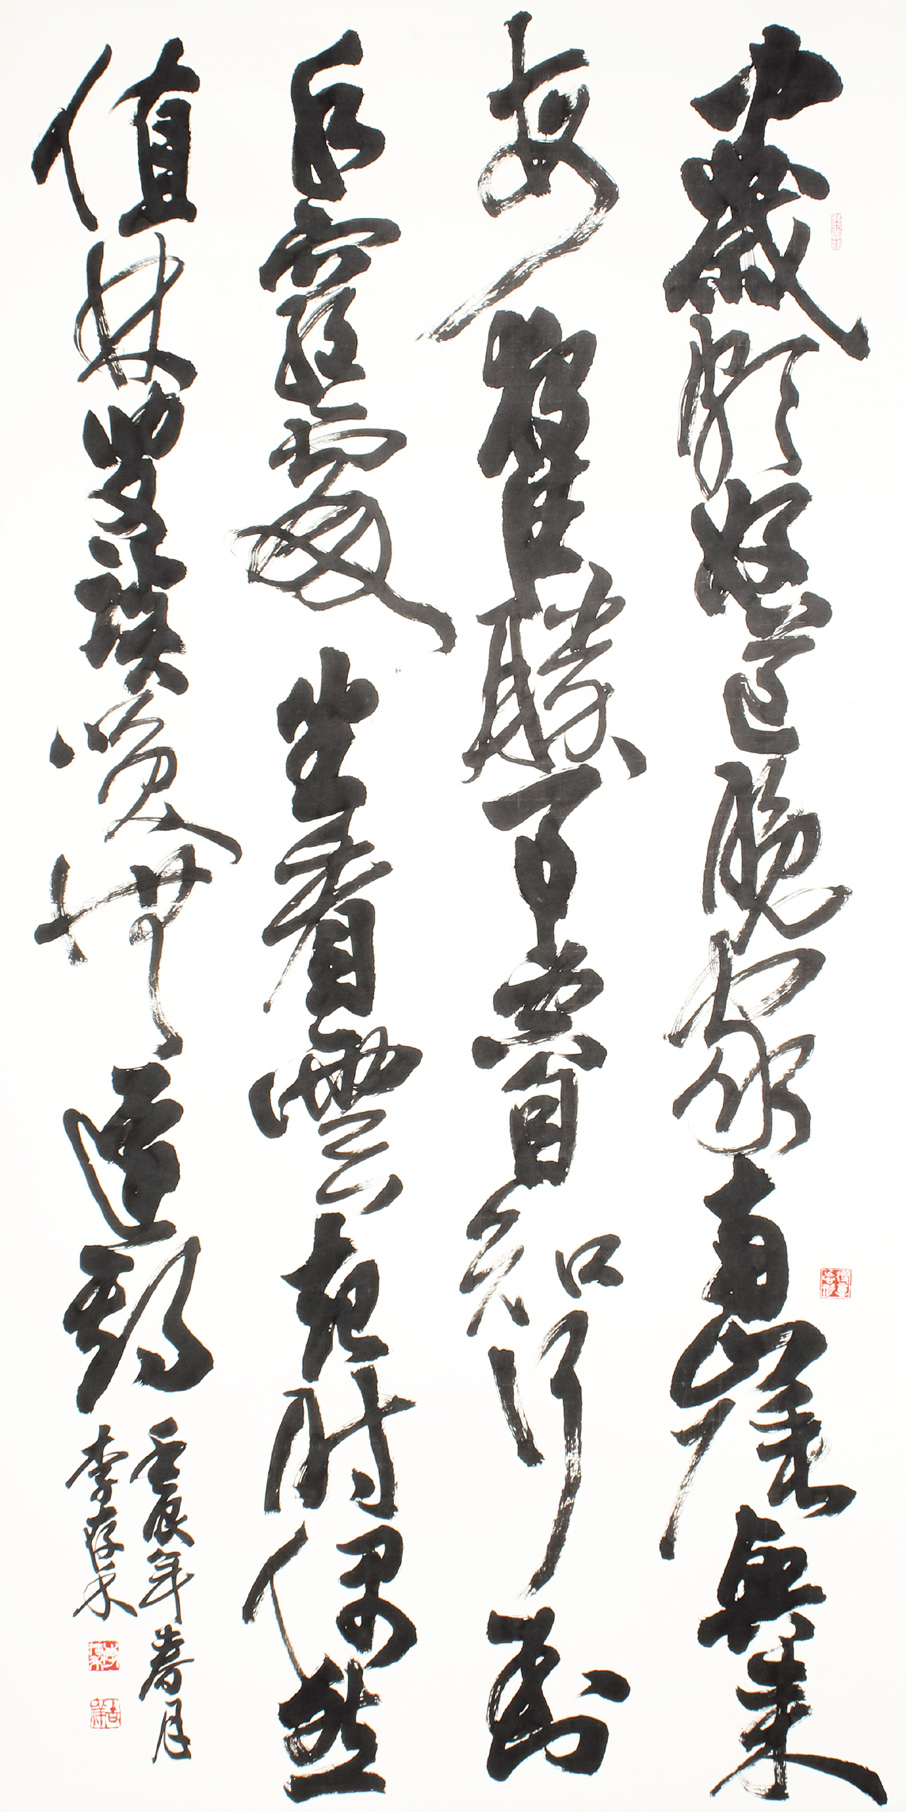 中歲頗好道晚家南山陲興來
每獨往勝事空自知行到
水窮處坐看雲起時偶然
值林叟談笑滯還期
壬辰年春月
李存